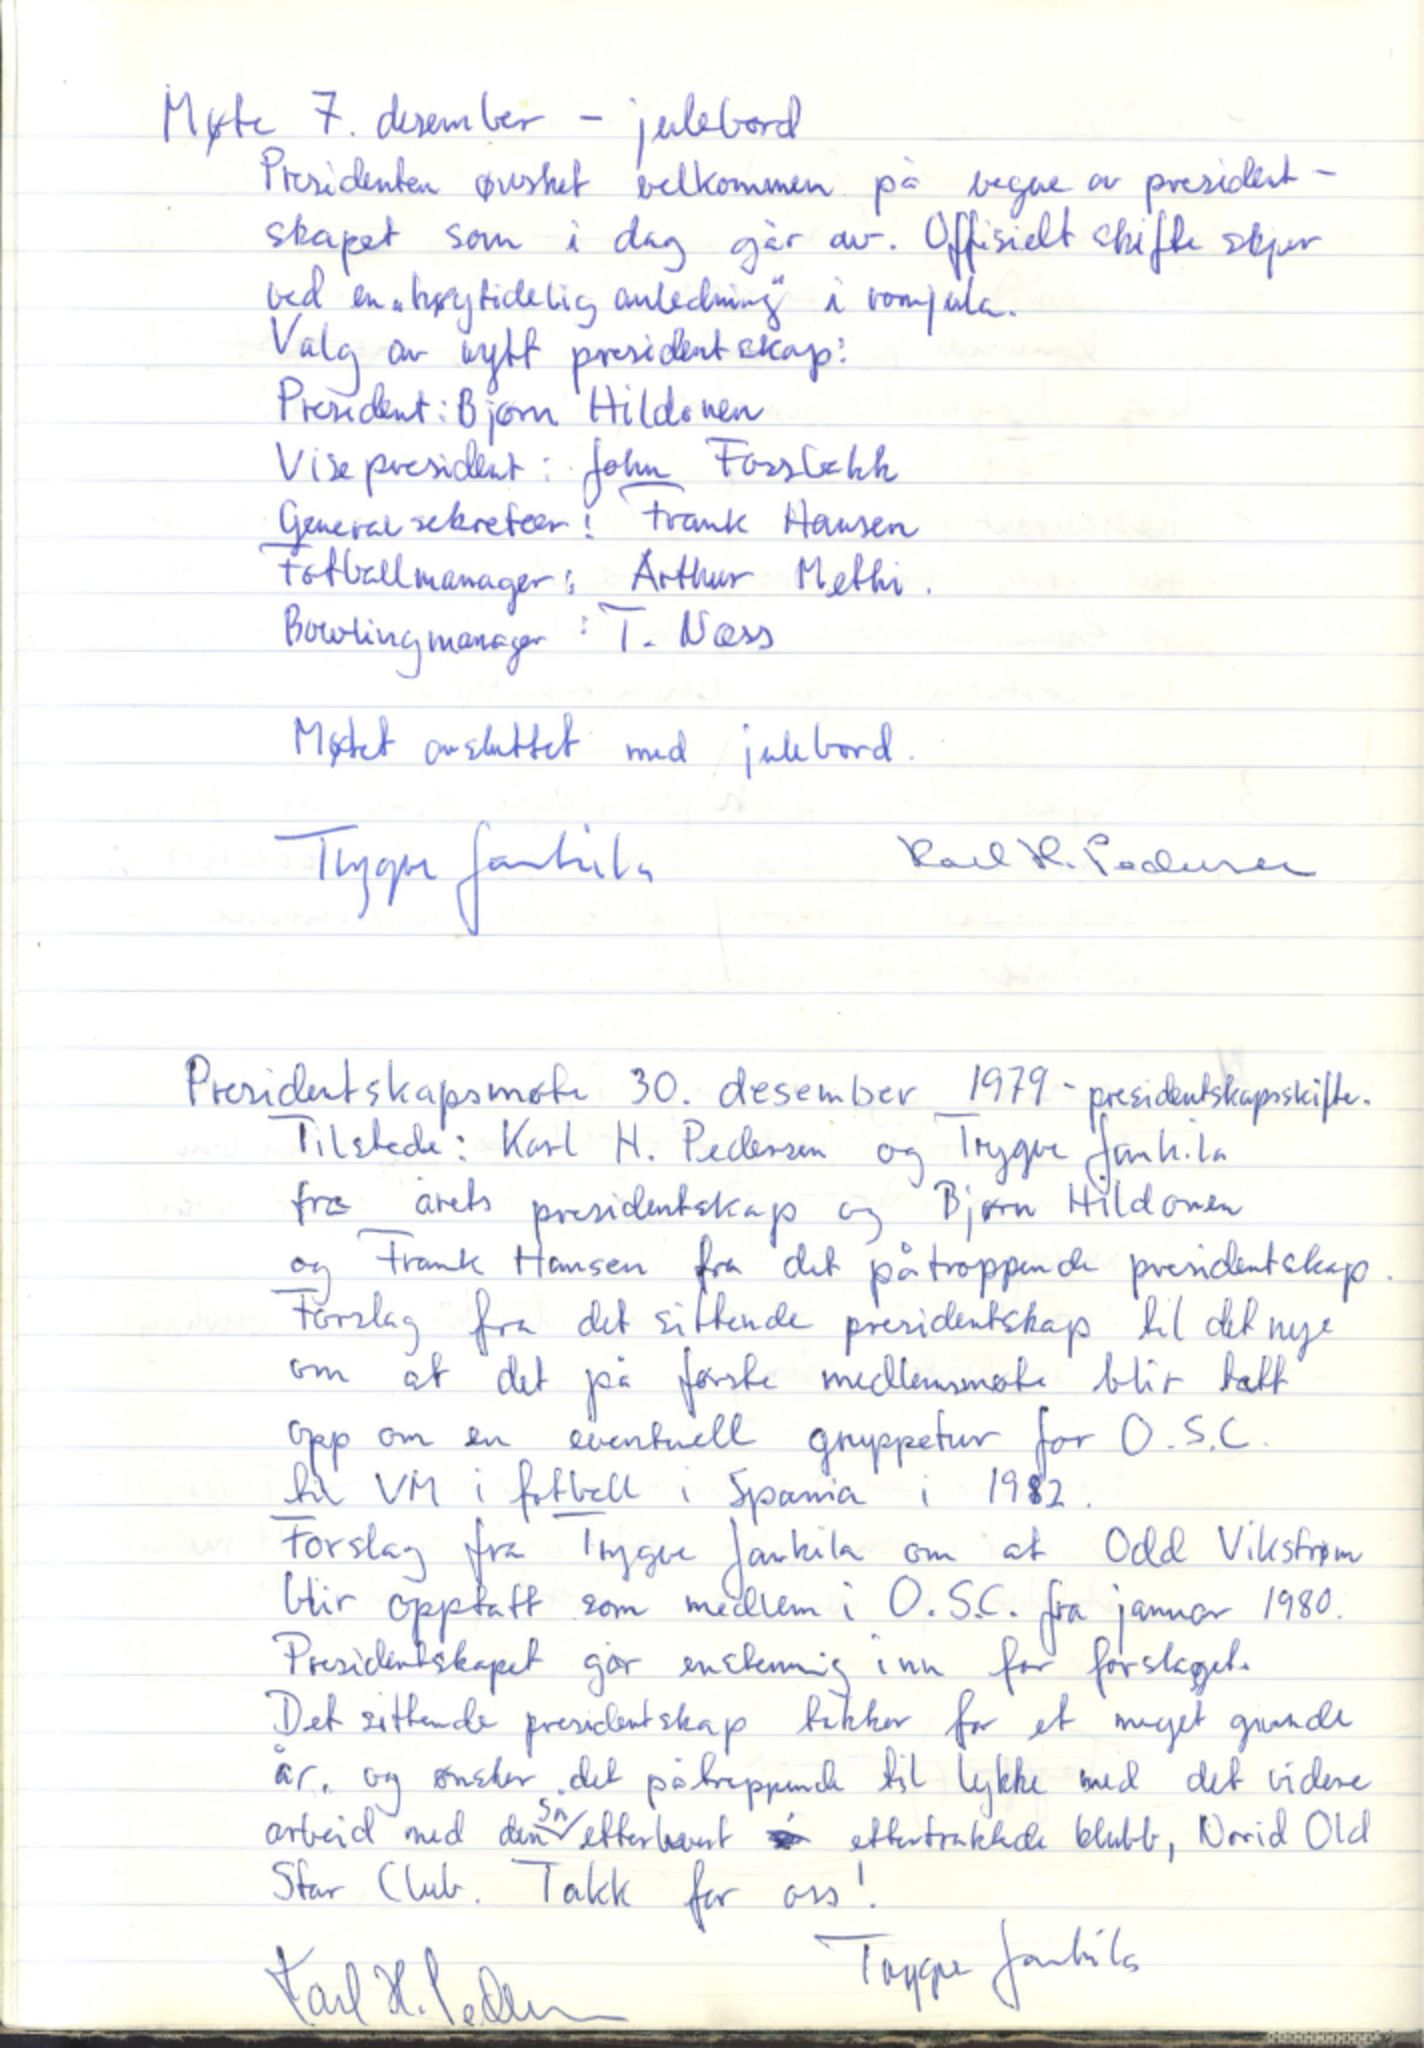 Møte 7. desember - julebord
Presidenten ønsket velkommen på vegne av president-
skapet som i dag går av. Offisielt skifte skjer
ved en „høytidelig anledning" i romjula.
Valg av nytt presidentskap:
President: Bjørn Hildonen
Visepresident: John Fossbakk
Generalsekretær: Frank Hansen
Fotballmanager: Arthur Methi.
Bowlingmanager: T. Næss
Møtet avsluttet med julebord.
Trygve Jankila Karl H. Pedersen
Presidentskapsmøte 30. desember 1979 - presidentskapsskifte.
Tilstede: Karl H. Pedersen og Trygve Jankila
fra årets presidentskap og Bjørn Hildonen
og Frank Hansen fra det påtroppende presidentskap.
Forslag fra det sittende presidentskap til det nye
om at det på første medlemsmøte blir tatt
opp om en eventuell gruppetur for O.S.C.
til VM i fotball i Spania i 1982.
Forslag fra Trygve Jankila om at Odd Vikstrøm
blir opptatt som medlem i O.S.C. fra januar 1980.
Presidentskapet går enstemmig inn for forslaget.
Det sittende presidentskap takker for et meget givende
år, og ønsker det påtroppende til lykke med det videre
arbeid med den så etterhvert ettertraktede klubb, Norild Old
Star Club. Takk for oss!
Karl H. Pedersen Trygve Jankila